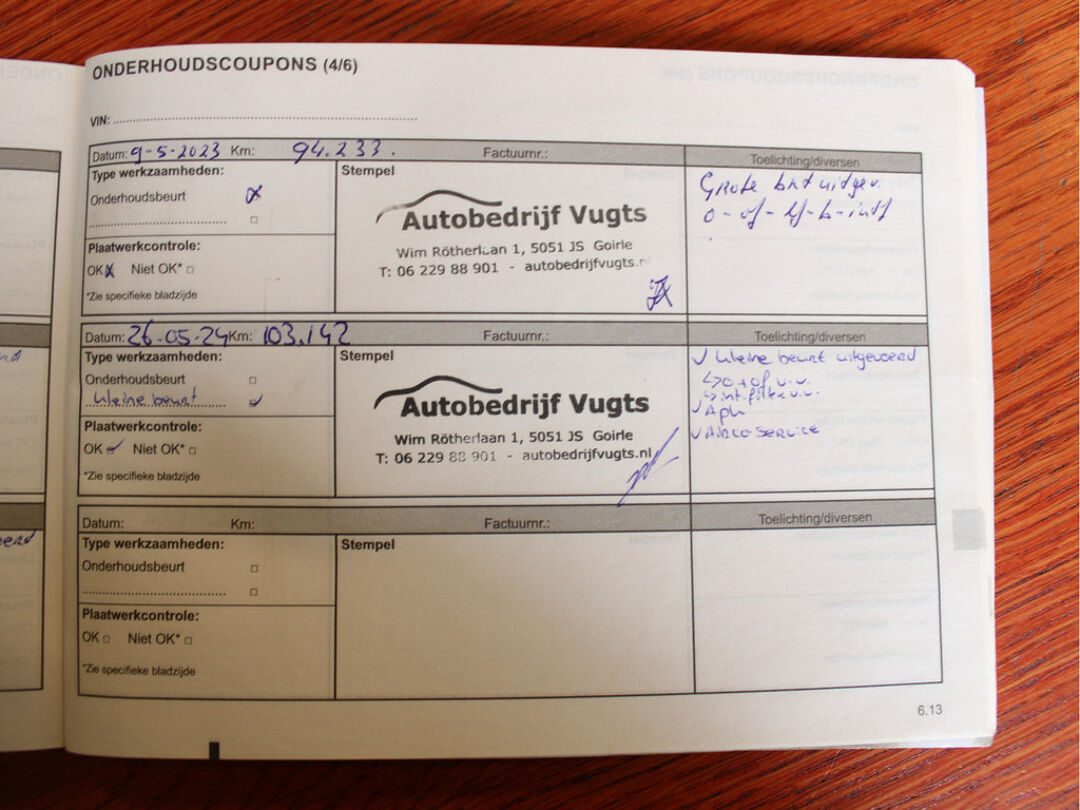 ONDERHOUDSCOUPONS (4/6)
VIN:
Datum: 9-5-2023 Km: 94.233. Factuurnr.: Toelichting/diversen
Type werkzaamheden:
Onderhoudsbeurt
Stempel
Autobedrijf Vugts
Wim Rötherlaan 1, 5051 JS Goirle
T: 06 229 88 901 - autobedrijfvugts.nl
Grote
Plaatwerkcontrole:
OK Niet OK*
*Zie specifieke bladzijde
Datum: 26-05-24 Km: 103.142 Factuurnr.: Toelichting/diversen
Type werkzaamheden:
Onderhoudsbeurt
kleine beurt
Stempel
Autobedrijf Vugts
Wim Rötherlaan 1, 5051 JS Goirle
T: 06 229 88 901 - autobedrijfvugts.nl
kleine beurt uitgevoerd
o + of v.v.
int. filter v.v.
Apk
Airco service
Plaatwerkcontrole:
OK Niet OK*
*Zie specifieke bladzijde
Datum: Km: Factuurnr.: Toelichting/diversen
Type werkzaamheden:
Onderhoudsbeurt
Stempel
Plaatwerkcontrole:
OK Niet OK*
*Zie specifieke bladzijde
6.13